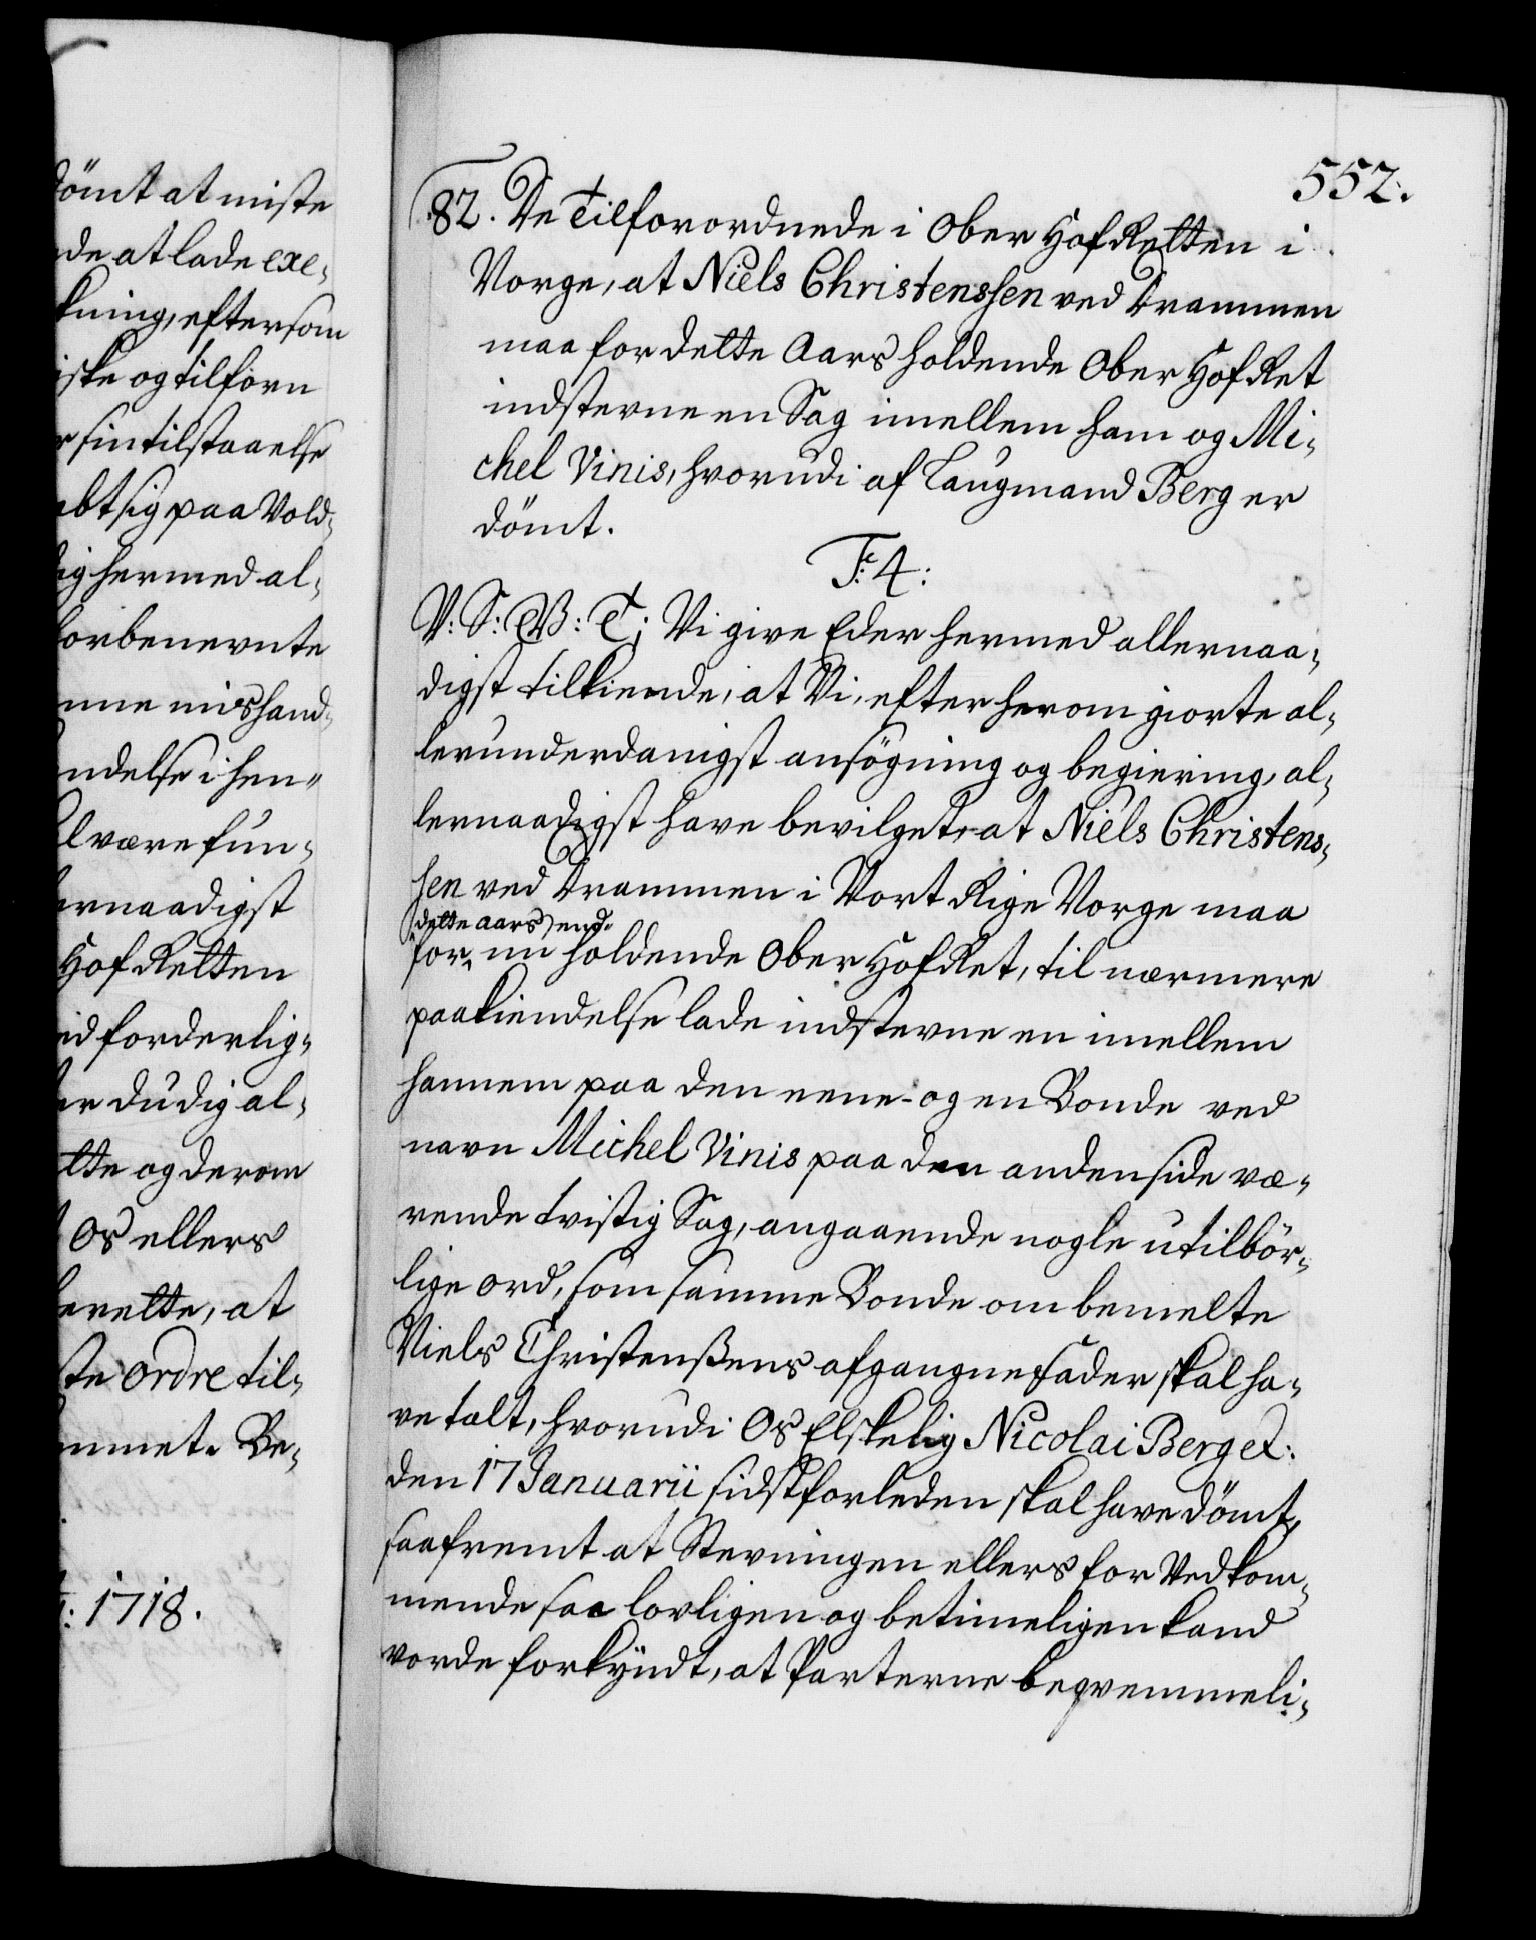 dömt at miste
de at lade exe-
kning, eftersom
iske og tilforn
r sin tilstaaelse
abt sig paa Vold-
ig hermed al-
forbenevnte
nne mishand-
ndelse i hen-
l være fun-
ernaadigst
Hof Retten
id forderlig-
er du dig al-
tte og derom
Os ellers
berette, at
ste ordre til-
mmet. Be-
t: 1718.
552.
82. De Tilforordnede i Ober Hof Retten i
Norge, at Niels Christenssen ved Drammen
maa for dette Aars holdende Ober Hof Ret
indsterne en Sag imellem ham og Mi-
chel Vinis, hvorudi af Laugmand Berg er
dömt.
F: 4:
V: S: G B: T; Vi give Eder hermed allernaa-
digst tilkiende, at Vi, efter herom giorte al-
lerunderdanigst ansögning og begiering, al-
lernaadigst have bevilget, at Niels Christens-
sen ved Drammen i Vort Rige Norge maa
dette Aars end-
for nu holdende Ober Hof Ret, til nærmere
paakiendelse lade indstevne en imellem
hannem paa den eene- og en Bonde ved
navn Michel Vinis paa den anden side væ-
rende tvistig Sag, angaaende nogle utilbör-
lige ord, som samme Bonde om bemelte
Niels Christenßens afgangne Fader skal ha-
ve talt, hvorudi Os Elskelig Nicolai Berg et:
den 17 Januarii sidstforleden skal have dömt,
saafremt at Stevningen ellers for Vedkom-
mende saa lovligen og betimeligen kand
vorde forkyndt, at Parterne beqvemmeli-